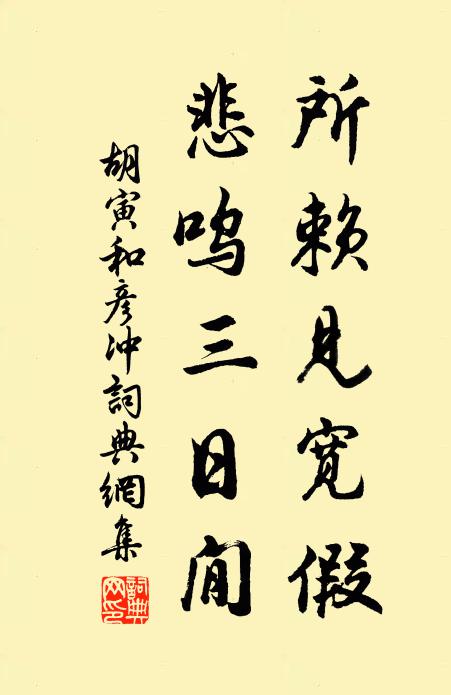 所赖见宽假
悲鸣三日间
胡寅和彦冲詞典網集
詞典網印